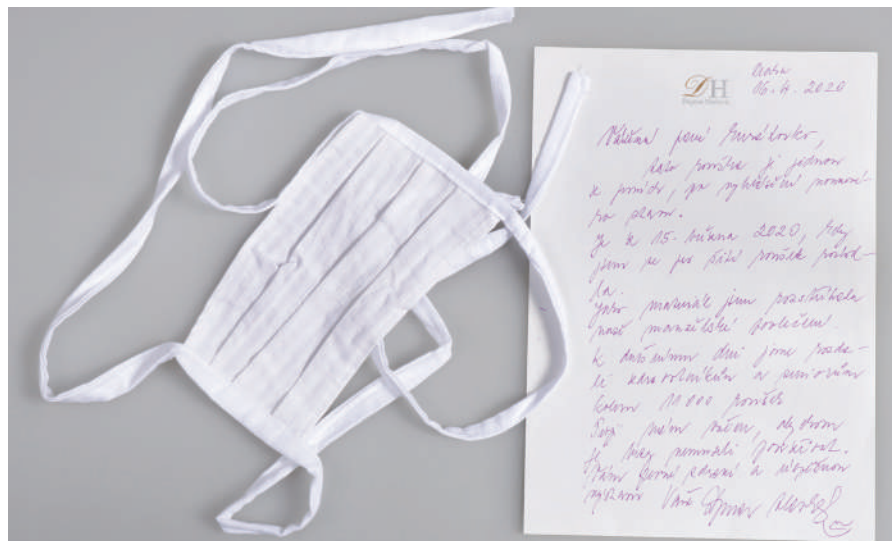 DH
Dagmar Havlová
Praha
16. 4. 2020
Vážená paní kurátorko,
tato rouška je jednou
z prvních, po vyhlášení nouzové-
ho stavu.
Je z 15. března 2020, kdy
jsem se pro šití roušek rozhod-
la.
Jako materiál jsem rozstříhala
naše manželské povlečení.
K dnešnímu dni jsme rozda-
li zdravotníkům a seniorům
kolem 11 000 roušek
Přeji nám všem, abychom
je brzy nemuseli používat.
Vám pevné zdraví a úspěšnou
výstavu Vaše Dagmar Havlová